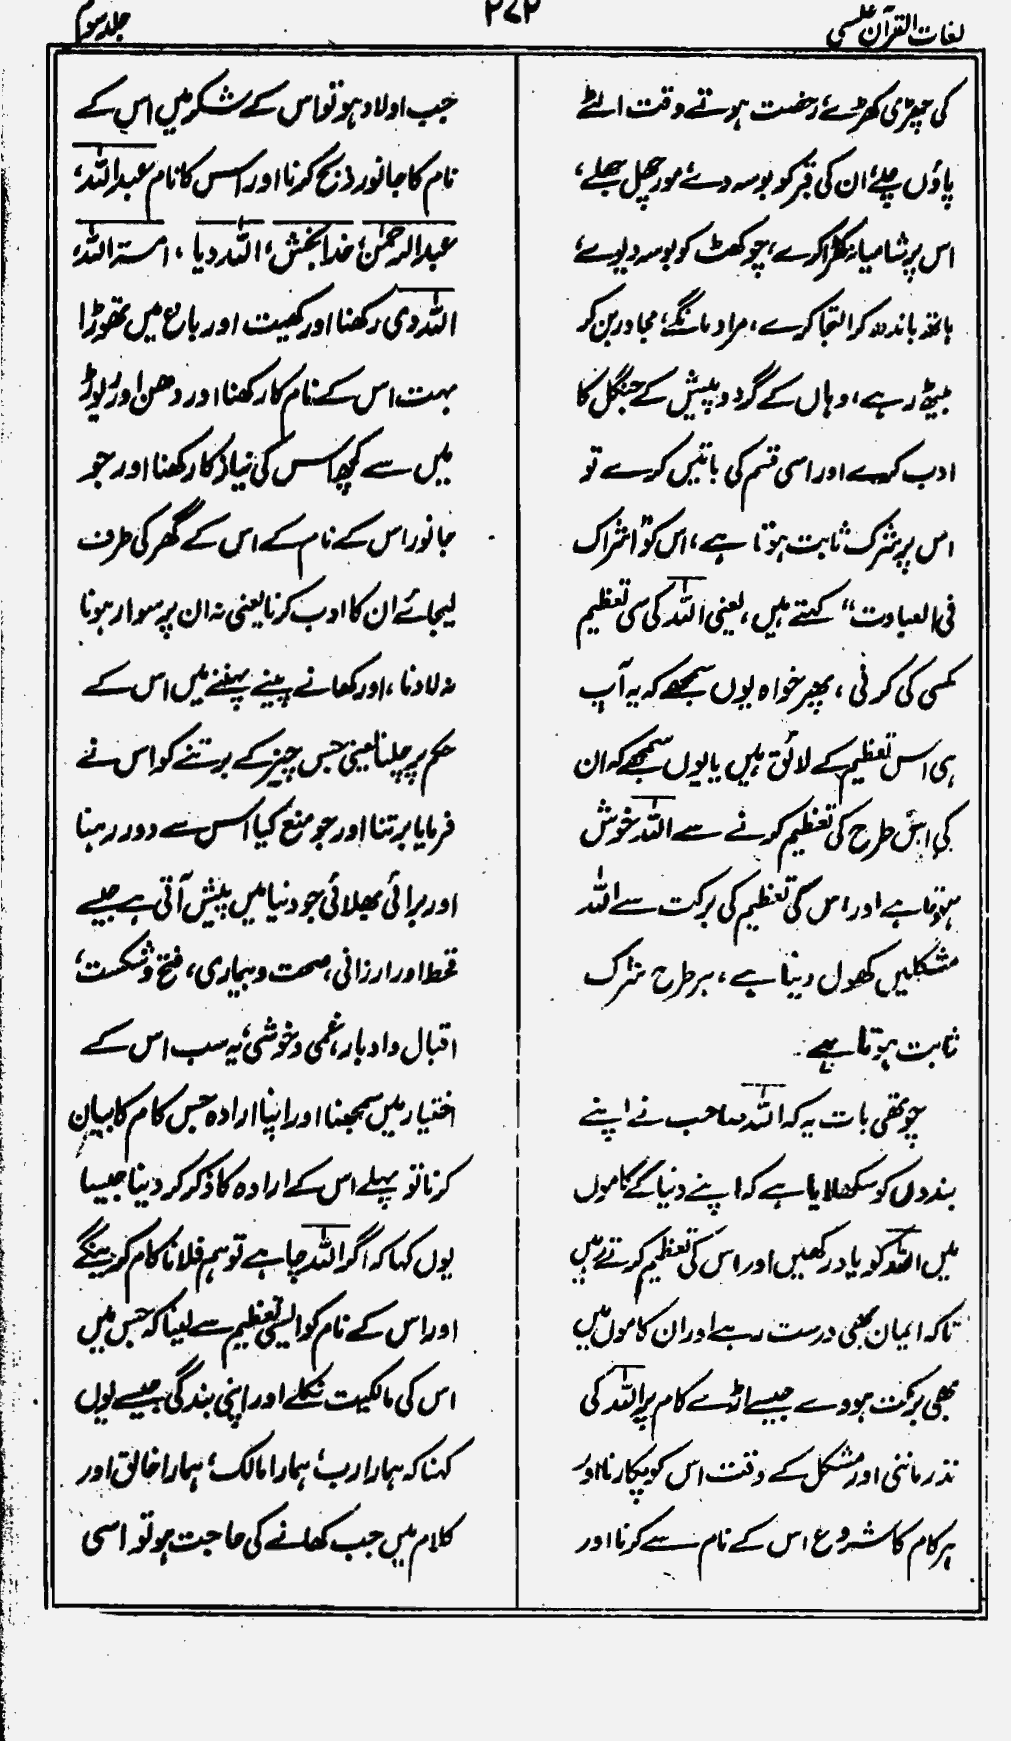 لغات القرآن عکسی
۲۷۲
جلد سوم
کی چھڑی کھڑے، رخصت ہوتے وقت الٹے
پاؤں چلے، ان کی قبر کو بوسہ دے، مورچھل جھلے،
اس پر شامیانہ کھڑا کرے، چوکھٹ کو بوسہ دیوے،
ہاتھ باندھ کر التجا کرے، مراد مانگے، مجاور بن کر
بیٹھ رہے، وہاں کے گرد و پیش کے جنگل کا
ادب کرے اور اسی قسم کی باتیں کرے تو
اس پر شرک ثابت ہوتا ہے، اس کو "اشراک
فی العبادت" کہتے ہیں، یعنی اللہ کی سی تعظیم
کسی کی کرنی، پھر خواہ یوں سمجھے کہ یہ آپ
ہی اس تعظیم کے لائق ہیں یا یوں سمجھے کہ ان
کی اس طرح کی تعظیم کرنے سے اللہ خوش
ہوتا ہے اور اس کی تعظیم کی برکت سے اللہ
مشکلیں کھول دیتا ہے، ہر طرح شرک
ثابت ہوتا ہے۔
چوتھی بات یہ کہ اللہ صاحب نے اپنے
بندوں کو سکھلایا ہے کہ اپنے دنیا کے کاموں
میں اللہ کو یاد رکھیں اور اس کی تعظیم کرتے رہیں
تاکہ ایمان بھی درست رہے اور ان کاموں میں
بھی برکت ہووے جیسے اڑے کام پر اللہ کی
نذر ماننی اور مشکل کے وقت اس کو پکارنا اور
ہر کام کا شروع اس کے نام سے کرنا اور
جب اولاد ہو تو اس کے شکر میں اس کے
نام کا جانور ذبح کرنا اور اس کا نام عبداللہ،
عبدالرحمٰن، خدا بخش، اللہ دیا، امۃ اللہ،
اللہ دی رکھنا اور کھیت اور باغ میں تھوڑا
بہت اس کے نام کا رکھنا اور دھن اور ریوڑ
میں سے کچھ اس کی نیاز کا رکھنا اور جو
جانور اس کے نام کے اس کے گھر کی طرف
لیجائے ان کا ادب کرنا یعنی نہ ان پر سوار ہونا
نہ لادنا، اور کھانے پینے پہننے میں اس کے
حکم پر چلنا یعنی جس چیز کے برتنے کو اس نے
فرمایا برتنا اور جو منع کیا اس سے دور رہنا
اور برائی بھلائی جو دنیا میں پیش آتی ہے جیسے
قحط اور ارزانی، صحت و بیماری، فتح و شکست،
اقبال و ادبار، غمی و خوشی، یہ سب اس کے
اختیار میں سمجھنا اور اپنا ارادہ جس کام کا بیان
کرنا تو پہلے اس کے ارادہ کا ذکر کر دینا جیسا
یوں کہا کہ اگر اللہ چاہے تو ہم فلانا کام کرینگے
اور اس کے نام کو ایسی تعظیم سے لینا کہ جس میں
اس کی مالکیت نکلے اور اپنی بندگی جیسے یوں
کہنا کہ ہمارا رب، ہمارا مالک، ہمارا خالق اور
کلام میں جب کھانے کی حاجت ہو تو اسی